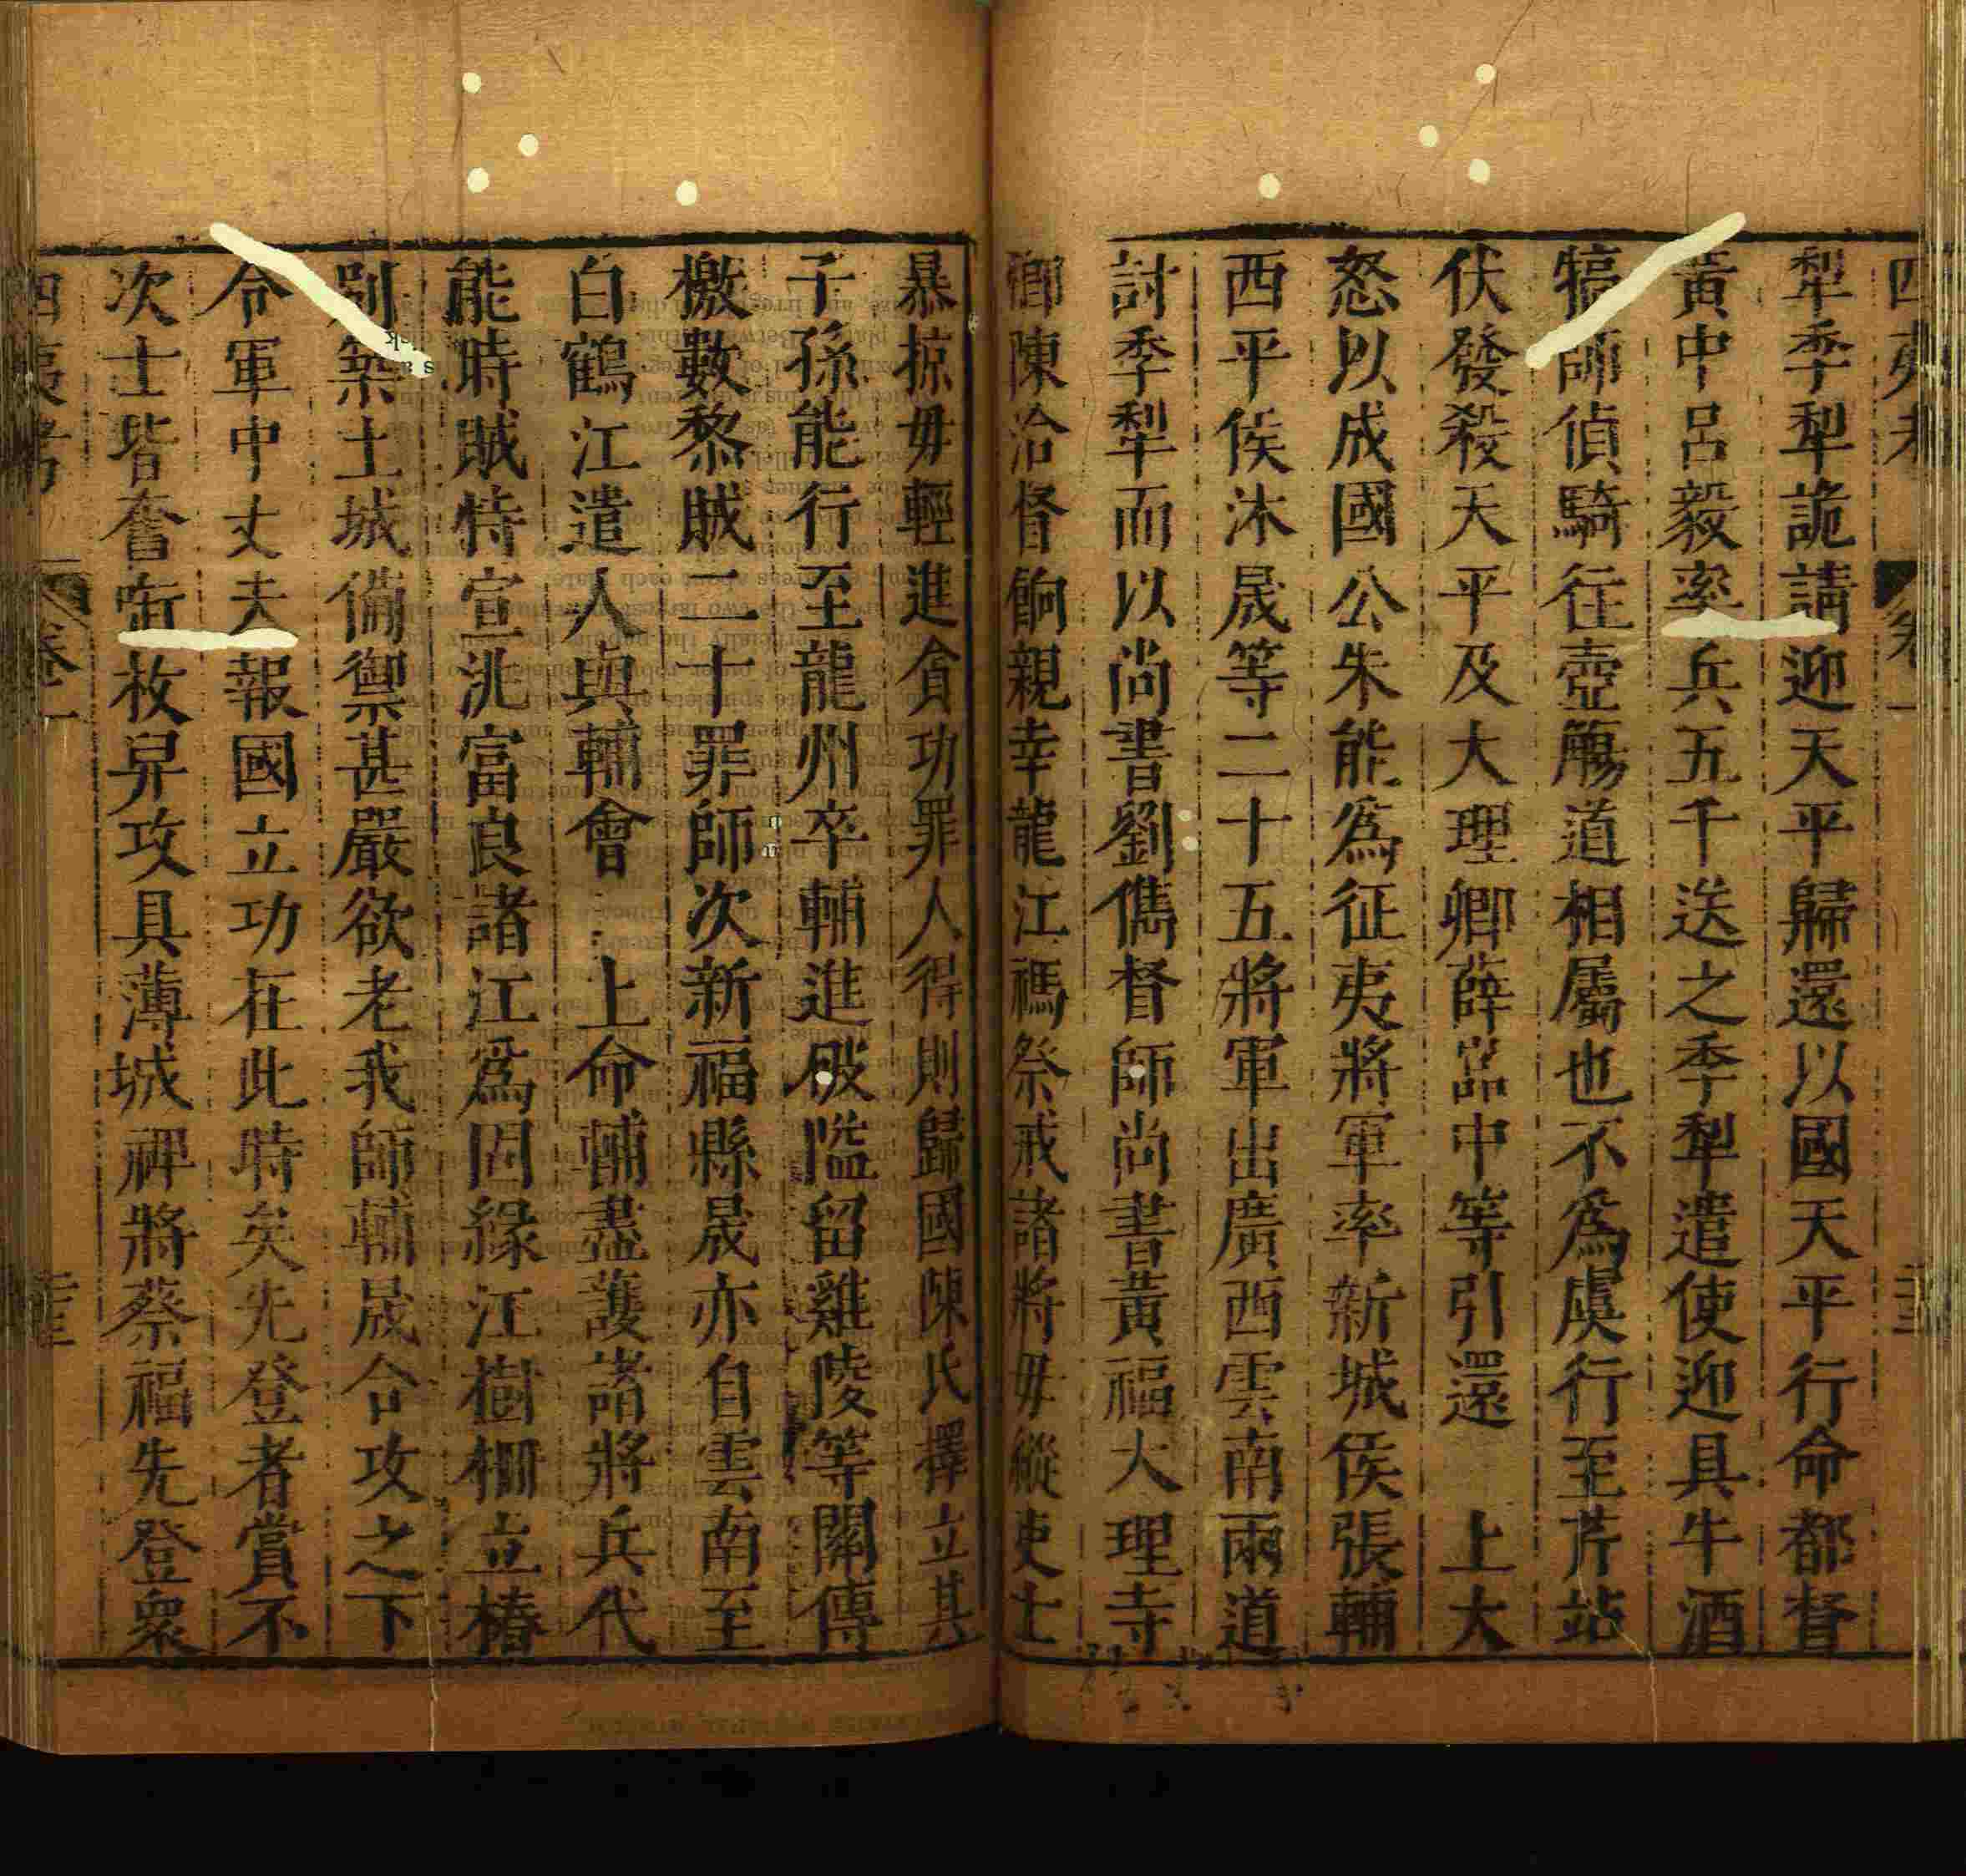 四夷考
卷一
犁季犁詭請迎天平歸還以國天平行命都督
黃中呂毅率兵五千送之季犁遣使迎具牛酒
犒師偵騎往壺觴道相屬也不為虞行至芹站
伏發殺天平及大理卿薛嵓中等引還 上大
怒以成國公朱能為征夷將軍率新城侯張輔
西平侯沐晟等二十五將軍出廣西雲南兩道
討季犁而以尚書劉儁督師尚書黃福大理寺
卿陳洽督餉親幸龍江禡祭戒諸將毋縱吏士
暴掠毋輕進貪功罪人得則歸國陳氏擇立其
子孫能行至龍州卒輔進破隘留雞陵等關傳
檄數黎賊二十罪師次新福縣晟亦自雲南至
白鶴江遣人與輔會 上命輔盡護諸將兵代
能時賊特宣洮富良諸江為固緣江樹柵立樁
別築土城備禦甚嚴欲老我師輔晟合攻之下
令軍中丈夫報國立功在此時矣先登者賞不
次士皆奮銜枚舁攻具薄城裨將蔡福先登眾
四夷考
卷一